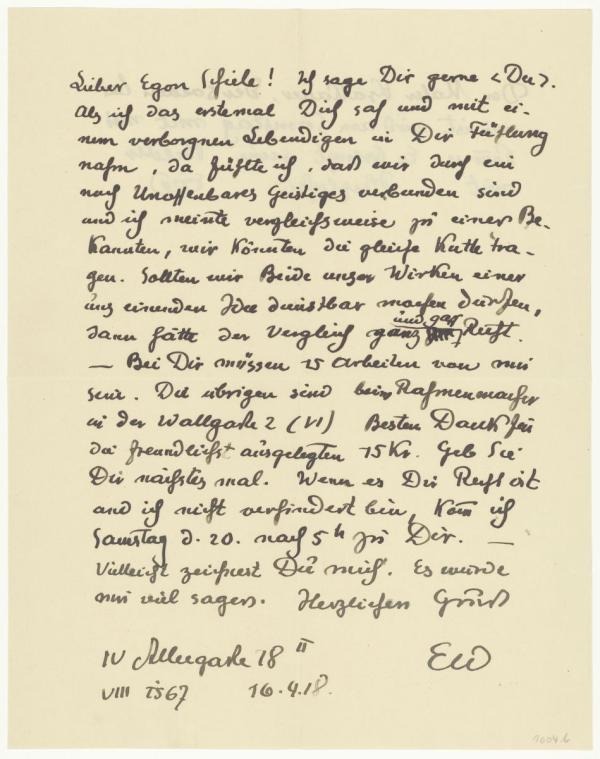 Lieber Egon Schiele! Ich sage Dir gerne <Du>.
Als ich das erstemal Dich sah und mit ei-
nem verborgnen Lebendigen in Dir Fühlung
nahm, da fühlte ich, daß wir durch ein
noch Unoffenbares Geistiges verbunden sind
und ich meinte vergleichsweise zu einer Be-
kannten, wir könnten die gleiche Kutte tra-
gen. Sollten wir Beide unser Wirken einer
uns einenden Idee dienstbar machen dürfen,
dann hätte der Vergleich ganz und gar Recht.
— Bei Dir müssen 15 Arbeiten von mir
sein. Die übrigen sind beim Rahmenmacher
in der Wallgasse 2 (VI) Besten Dank für
die freundlichst ausgelegten 15 Kr. Geb Sie
Dir nächstes mal. Wenn es Dir Recht ist
und ich nicht verhindert bin, kom̄ ich
Samstag d. 20. nach 5h zu Dir. —
Vielleicht zeichnest Du mich. Es würde
mir viel sagen. Herzlichen Gruß
IV 18 II EW
VIII 16.4.18.
1004.6